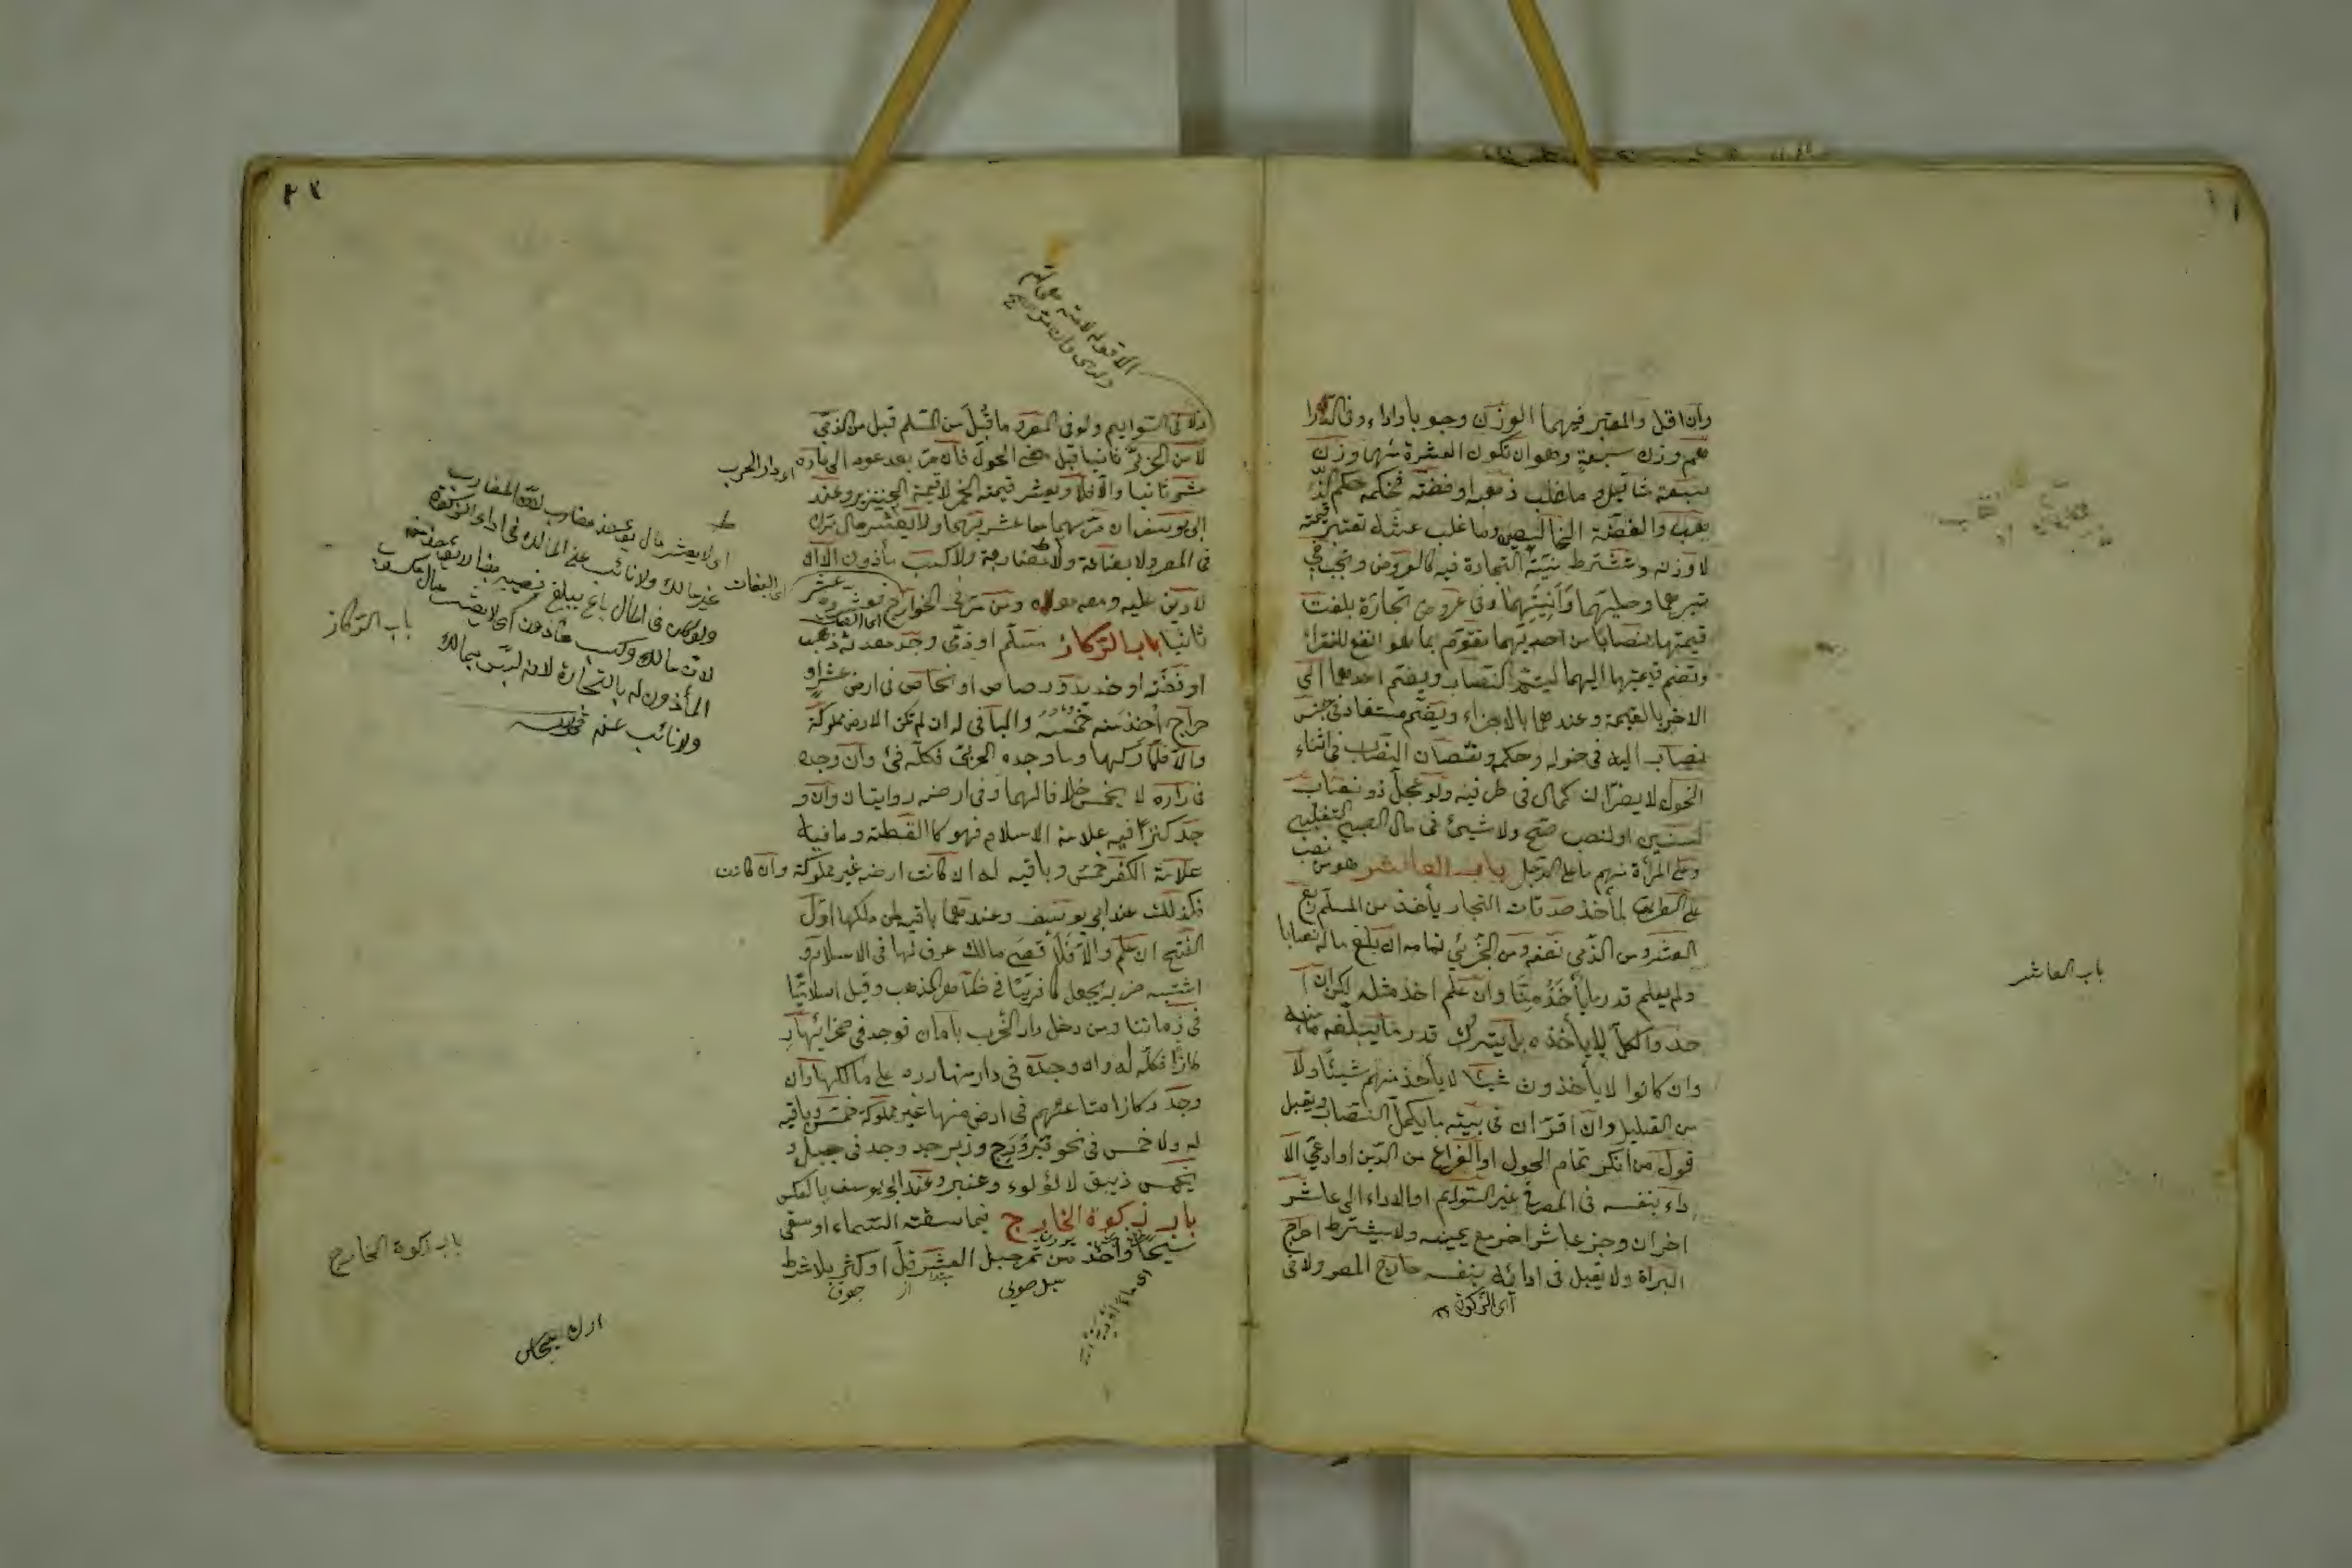 وان اقل والمعتبر فيهما الوزن وجوبا واداء وفى الدرا
هم وزن سبعة وهو ان تكون العشرة منها وزن
سبعة مثاقيل وما غلب ذهبه او فضته فحكمه حكم الذ
هب والفضة الخالصين وما غلب غشه تعتبر قيمته
لا وزنه وتشترط نية التجارة فيه كالعروض وتجب فى
تبرهما وحليهما وآنيتهما وفى عروض تجارة بلغت
قيمتها نصابا من احديهما تقوم بما هو انفع للفقراء
وتضم قيمتها اليهما ليتم النصاب ويضم احدهما الى
الاخر بالقيمة وعندهما بالاجزاء ويضم مستفاد من جنس
نصاب اليه فى حوله وحكمه ونقصان النصاب فى اثناء
الحول لا يضر ان كمال فى طرفيه ولو عجل ذو نصاب
لسنين او لنصب صح ولا شيئ فى مال الصبى التغلبى
وعلى المرأة منهم ما على الرجل باب العاشر هو من نصب
على الطريق لمأخذ صدقات التجار يأخذ من المسلم ربع
العشر ومن الذمى نصفه ومن الحربى تمامه ان بلغ ماله نصابا
ولم يعلم قدر ما يأخذ منا وان علم اخذ مثله لكن ان ا
خذ والكل لا يأخذه بل يترك قدر ما يبلغه مأمنه
وان كانوا لا يأخذون شيئا لا يأخذ منهم شيئا ولا
من القليل وان اقر ان فى بيته ما يكمل النصاب ويقبل
قول من انكر تمام الحول او الفراغ من الدين او ادعى الا
داء بنفسه فى المصر فى غير السوايم او الاداء الى عاشر
اخر ان وجد عاشر اخر مع يمينه ولا يشترط اخراج
البراة ولا يقبل فى ادائه بنفسه خارج المصر ولا فى
اى الزكوة
باب العاشر
الاموال السوايم ولو فى المصر وما قبل من المسلم قبل من الذمى
لا من الحربى ثانيا قبل مضى الحول فان مر بعد عوده الى داره
عشر ثانيا والا فلا ويعشر قيمة الخمر لا قيمة الخنزير وعند
ابى يوسف ان مر بهما معا عشر بهما ولا يعشر مال ترك
فى المصر ولا بضاعة ولا مضاربة ولا كسب مأذون الا ان
لا دين عليه ومعه مولاه ومن مر فى الخوارج فعشروه عشر
ثانيا باب الركاز مسلم او ذمى وجد معدن ذهب
او فضة او حديد او رصاص او نحاس فى ارض عشر او
خراج اخذ منه خمسه والباقى له ان لم تكن الارض مملوكة
والا فلمالكها وما وجده الحربى فكله فئ وان وجده
فى داره لا يخمس خلافا لهما وفى ارضه روايتان وان و
جد كنزا فيه علامة الاسلام فهو كاللقطة وما فيه
علامة الكفر خمس وباقيه له ان كانت ارضه غير مملوكة وان كانت
فكذلك عند ابى يوسف وعندهما باقيه لمن ملكها اول
الفتح ان علم والا فلاقصى مالك عرف لها فى الاسلام و
ما اشتبه ضربه يجعل كافريا فى ظاهر المذهب وقيل اسلاميا
فى زماننا ومن دخل دار الحرب بامان فوجد فى صحرائها ر
كازا فكله له وان وجده فى دار منها رده على مالكها وان
وجد ركازا متاعهم فى ارض منها غير مملوكة خمس وباقيه
له ولا خمس فى نحو فيروزج وزبرجد وجد فى جبل و
يخمس زيبق لا لؤلوء وعنبر وعند ابى يوسف بالعكس
باب زكوة الخارج فيما سقته السماء او سقى
سيحا واخذ من ثمر جبل العشر قل او كثر بلا شرط
اى دار الحرب
اى البغات
او لا يعشر مال يؤخذ مضارب لان المضارب
غير مالك ولا نائب عن المالك فى اداء الزكوة
لان مالك وكسب مأذون اى لا يعشر مال كسب
المأذون له بالتجارة لانه ليس بمالك
ولا نائب عنه
باب الركاز
باب زكوة الخارج